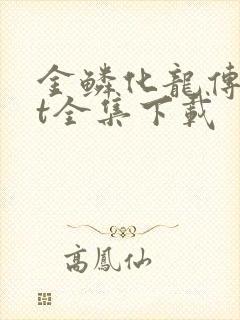 金鱗化龍傳
t全集下載
高鳳仙